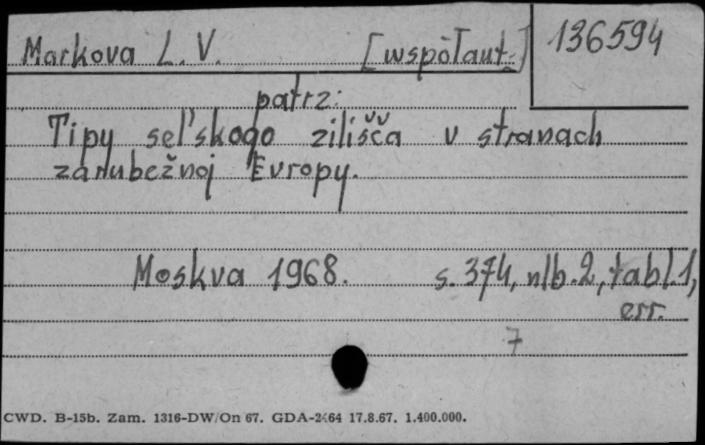 Markova L. V. [współaut.]
136594
patrz:
Tipy sel'skogo zilišča v stranach
zarubežnoj Evropy.
Moskva 1968. s. 374, nlb. 2, tabl. 1,
err.
7
CWD. B-15b. Zam. 1316-DW/On 67. GDA-2464 17.8.67. 1.400.000.